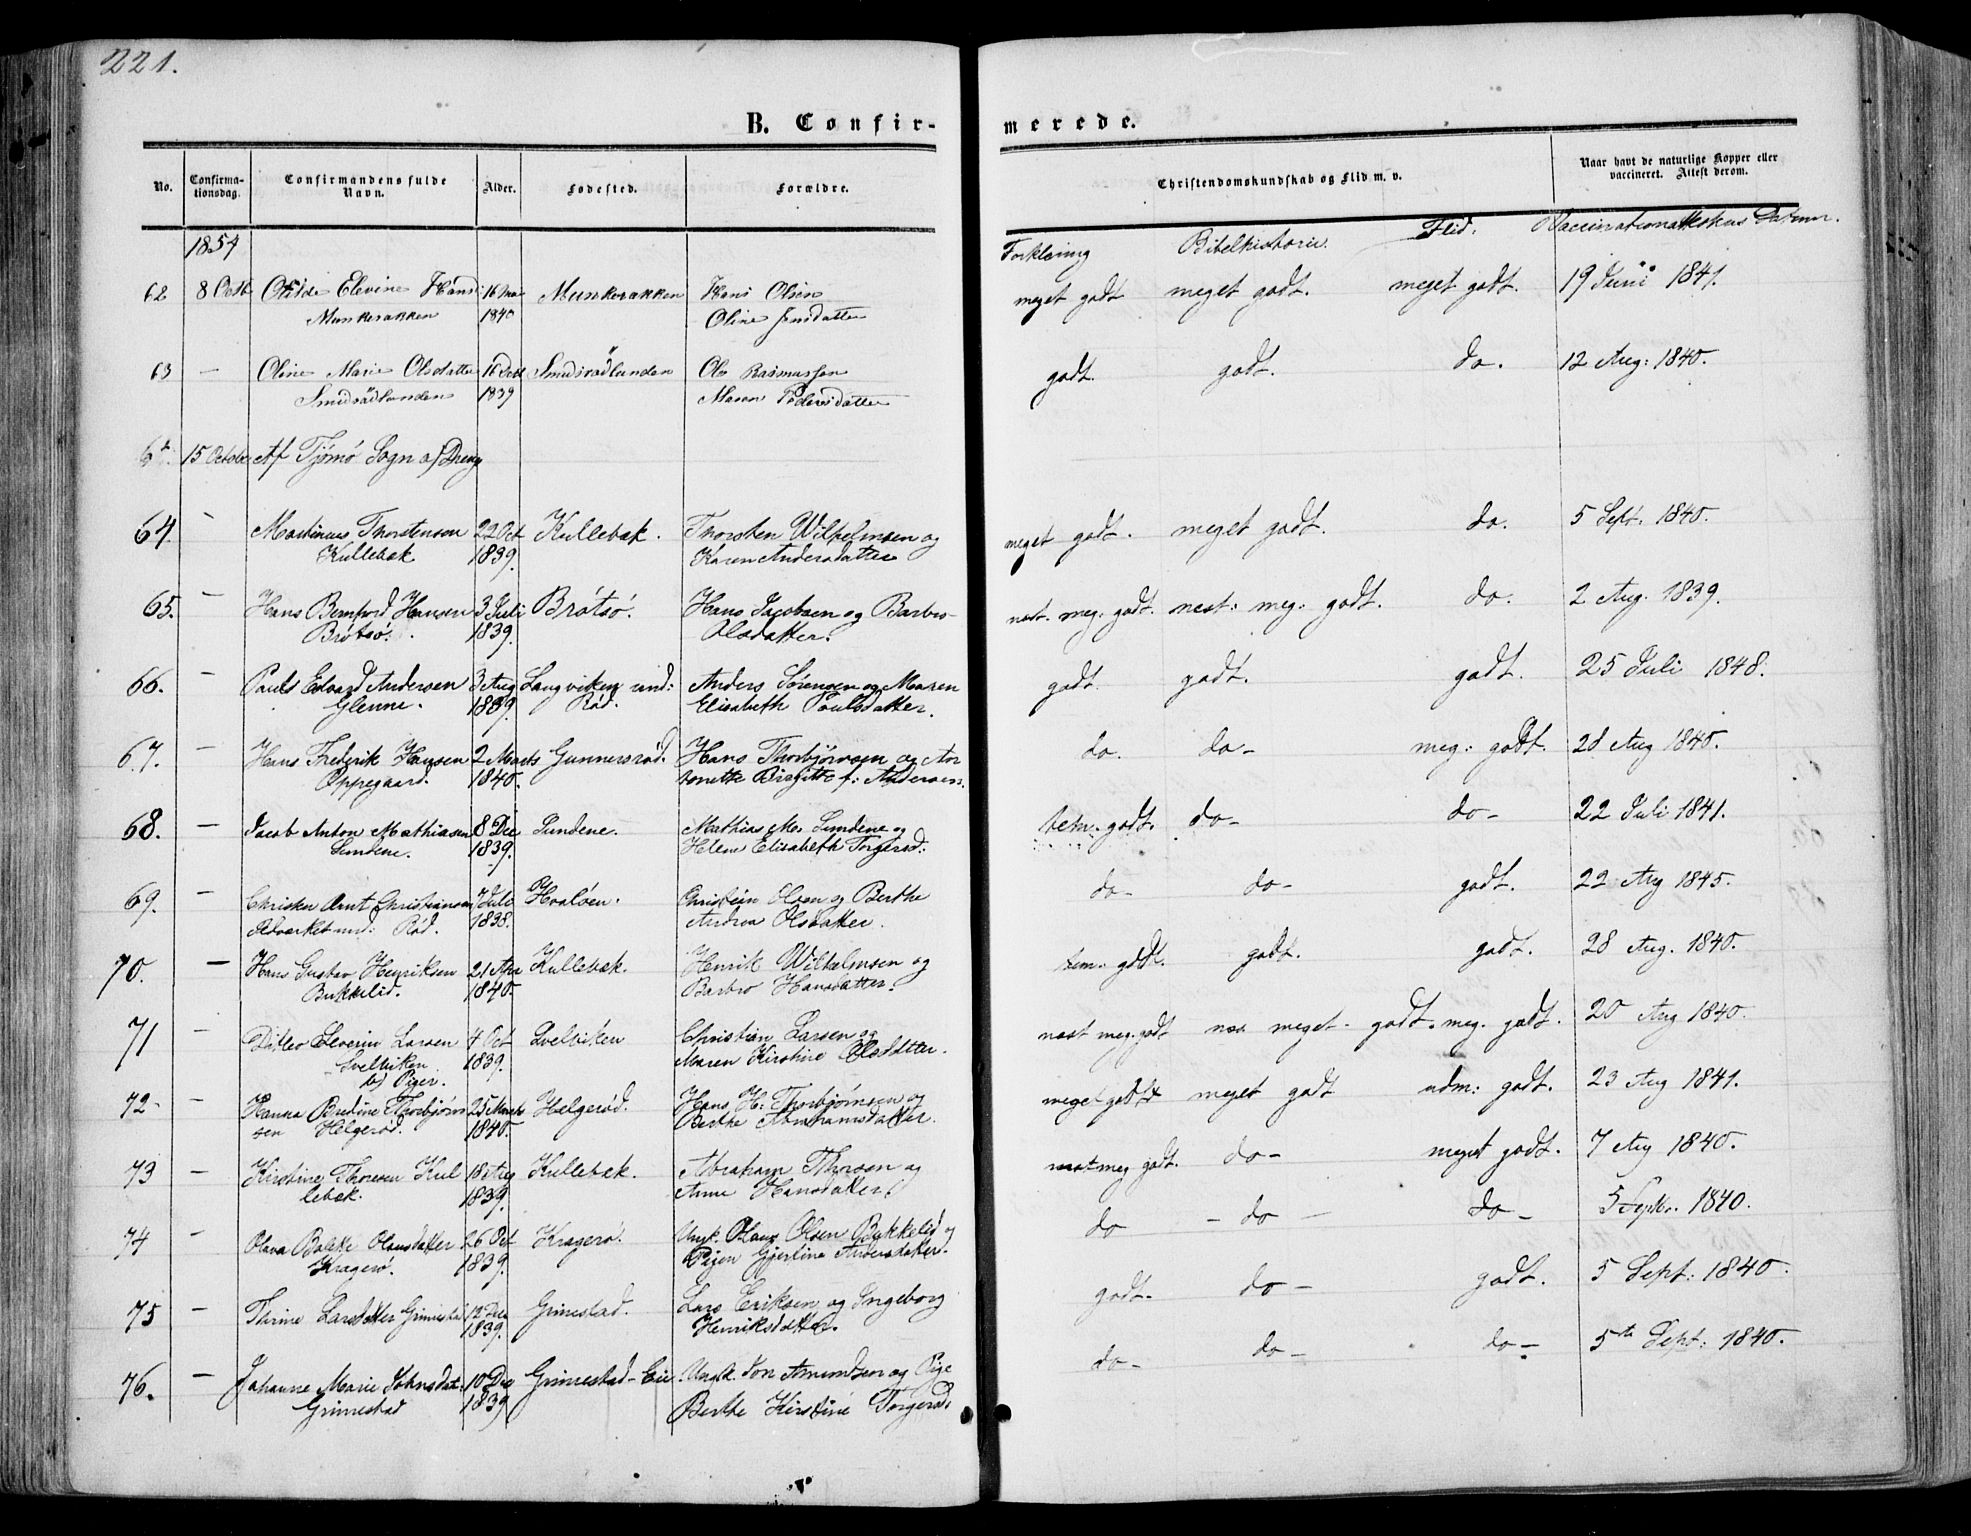 221.
B. Confir-
merede.
No.
Confirma-
tionsdag.
Confirmandens fulde
Navn.
Alder.
Fødested.
Forældre.
Christendomskundskab og Flid m. v.
Naar havt de naturlige Kopper eller
vaccineret. Attest derom.
1854
Forklaring Bibelhistorie. Flid.
62 8 Octb Elevine Hansd 16 Mai Munkerækken Hans Olsen meget godt meget godt. meget godt. 19 Juni 1841.
Munkerækken 1840 Oline Jensdatter
63 — Oline Marie Olsdatter 16 Smidsrødlunden Ole Rasmussen godt. godt. do. 12 Aug: 1840.
Smidsrødlunden 1839 Maren Pedersdatter
15 Octobr Af Tjømø Sogn a) Dreng
64 - Martinus Thorstensen 22 Oct Kullebæk. Thorsten Wilhelmsen og meget godt. meget godt. do. 5 Sept. 1840.
Kullebæk 1839. Karen Andersdatter
65. — Hans Hansen 3 Juli Brøtsø. Hans Jacobsen og Barbro nest. meg. godt. nest: meg: godt. do. 2 Aug. 1839.
Brøtsø. 1839. Olsdatter.
66. — Edvard Andersen 3 Aug Langviken und: Anders Sørensen og Maren godt. godt. godt. 25 Juli 1848.
Glenne. 1839. Rød. Elisabeth Poulsdatter.
67. — Hans Frederik Hansen 2 Marts Gunnersrød. Hans Thorbjørnsen og An do. do- meg: godt. 28 Aug 1840.
Oppegaard. 1840. tonette Birgitte f: Andersen.
68. — Jacob Anton Mathiasen 8 Dec Sundene. Mathias Sundene og godt. do- do- 22 Juli 1841.
Sundene. 1839. Helene Elisabeth Torgersd:
69. — Arnt Christiansen 7 Juli Hvaløen. Olsen og Berthe do- do- godt. 22 Aug 1845.
und: Rød. 1838. Andrea Olsdatter.
70. — Hans Gustav Henriksen 21 Apr Kullebæk. Henrik Wilhelmsen og godt. godt. 28 Aug. 1840.
Bukkelid. 1840. Barbro Hansdatter.
71 - Ditlev Severin Larsen 4 Oct Svelviken Christian Larsen og næst meg. godt meget- godt. meg. godt. 20 Aug 1840.
Svelviken 1839. Maren Kirstine Olsdatter.
b) Piger.
72- - Hanna Bredine Thorbjørn 25 Marts Helgerød. Hans H: Thorbjørnsen og meget godt meget godt udm: godt. 23 Aug 1841.
sen Helgerød. 1840. Berthe Abrahamsdatter.
73 - Kirstine Thoresen Kul 18 Aug Kullebæk. Abraham Thorsen og næst meg godt. do- meget godt. 7 Aug 1840.
lebæk. 1839. Anne Hansdatter.
74 - Olava Bolette Olausdatter 26 Oct Kragerø. Ungk. Olaus Olsen Bukkelid og do - do - do- 5 Septbr. 1840.
Kragerø. 1839. Pigen Gjertine Andersdatter.
75 - Thrine Larsdatter Grimestad 12 Dec Grimestad. Lars Eriksen og Ingeborg godt. do- godt. 5 Sept: 1840.
1839. Henriksdatter.
76. — Johanne Marie Johnsdat. 10 Dec Grimestad-Eie Ungk. Jon Amundsen og Pige do- do- do- 5te Sept: 1840.
Grimestad 1839 Berthe Kirstine Torgersd.